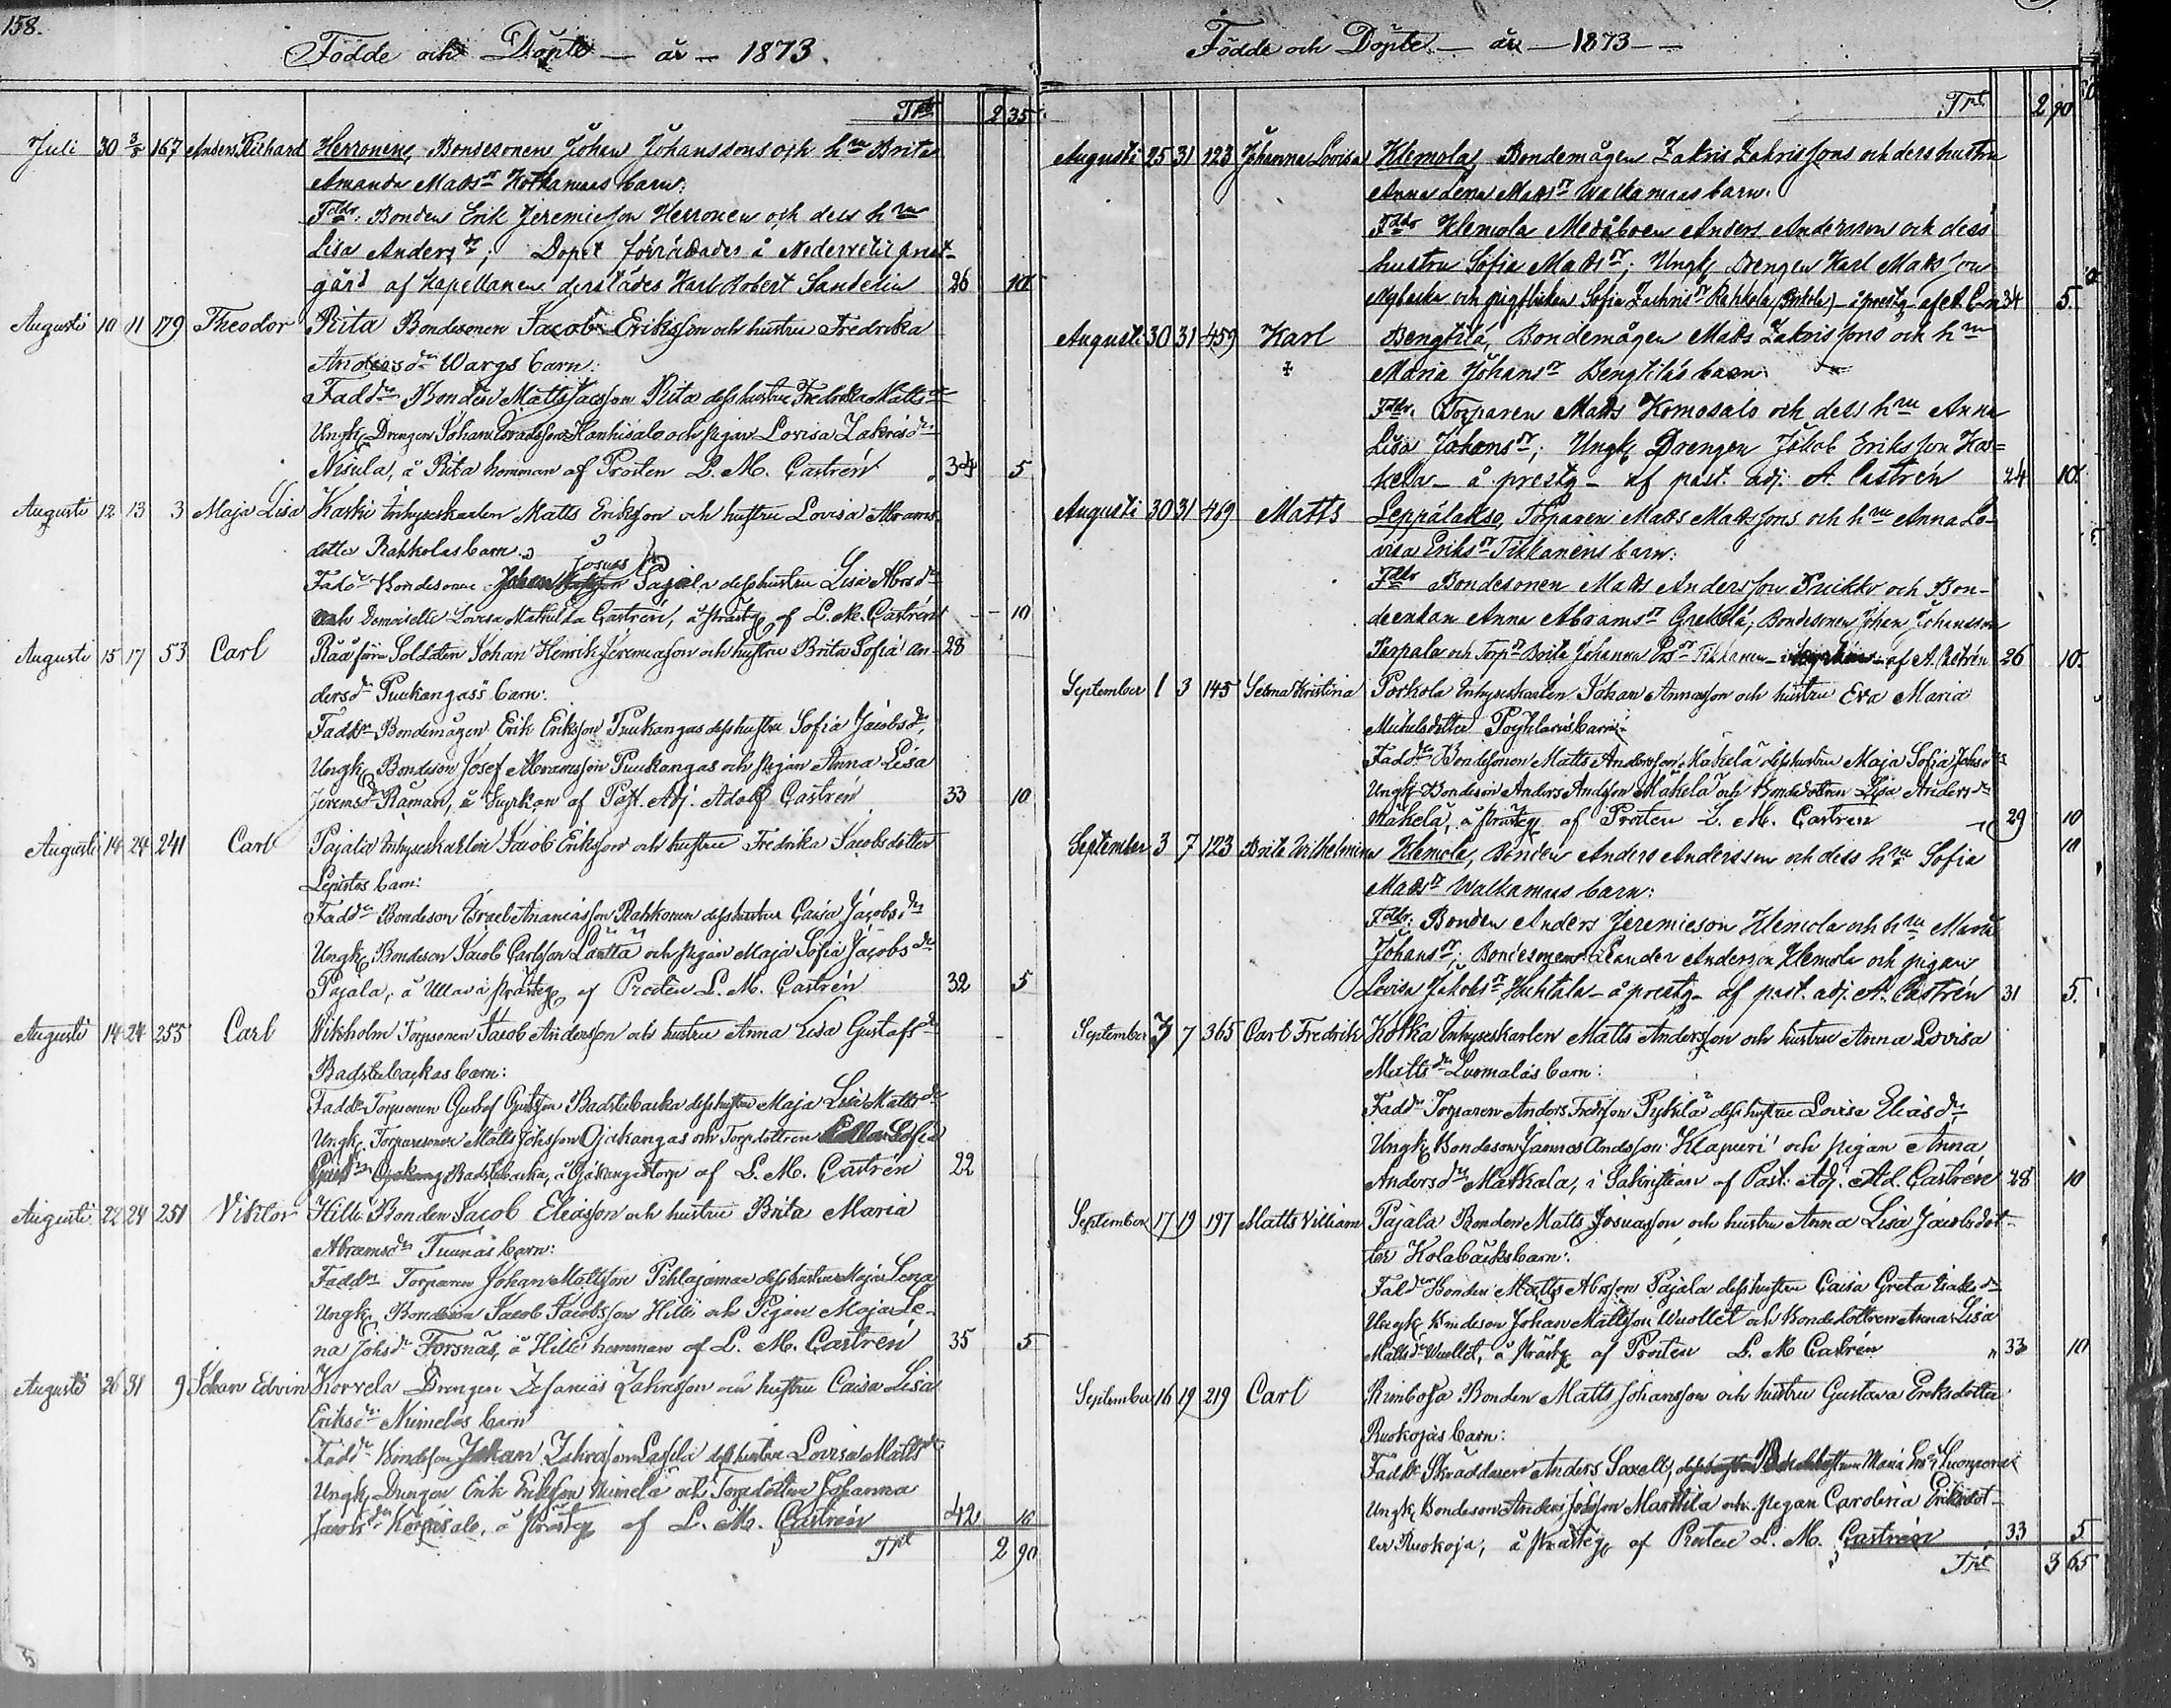 158.
Födde och Döpte — år — 1873.
Trpt 2 35
Juli 30 3/8 167 Anders Richard Herronens, Bondesonen Johan Johanssons och hru Brita
Amanda Matsdr Hotkamaas barn:
Fddr: Bonden Erik Jeremiesson Herronen och dess hru
Lisa Andersdr; Dopet förrättades å Nedervetil prest-
gård af Kapellanen derstädes Karl Robert Sandelin 26 10
Augusti 10 11 179 Theodor Rita Bondesonen Jacob Eriksson och hustru Fredrika
Andersdr Wargs barn:
Faddr Bonden Matts Jacsson Rita dess hustru Fredrika Mattsdr
Ungk Drengen Johan Hanhisalo och pigan Lovisa Zakrisdr
Nisula, å Rita hemman af Prosten L. M. Castrén 34 5
Augusti 12 13 3 Maja Lisa Kaski Inhyseskarlen Matts Eriksson och hustru Lovisa Abrams
dotter Rahkolas barn.
Josuas
Faddr Bondesonen Johan Pajala dess hustru Lisa Abrsdr
och Demoiselle Lovisa Mathilda Castrén, å prästg af L. M. Castrén 10
Augusti 15 17 53 Carl Råå förre Soldaten Johan Henrik Jeremiasson och hustru Brita Sofia An- 28
dersdr Puukangas's barn:
Faddr Bondemågen Erik Eriksson Puukangas dess hustru Sofia Jacobsdr,
Ungk Bondeson Josef Abramsson Puukangas och pigan Anna Lisa
Jeremsdr Råman, å kyrkan af Past. Adj. Adolf Castrén 33 10
Augusti 14 24 241 Carl Pajala Inhyseskarlen Jacob Eriksson och hustru Fredrika Jacobsdotter
Lepistos barn:
Faddr Bondeson Israel Ananiasson Rahkonen dess hustru Caisa Jacobsdr
Ungk Bondeson Jacob Carlsson Lantta och pigan Maja Sofia Jacobsdr
Pajala, å Ullava prästg af Prosten L. M. Castrén 32 5
Augusti 14 24 255 Carl Wikholm Torpsonen Jacob Andersson och hustru Anna Lisa Gustafsdr
Badstubackas barn:
Faddr Torparen Gustaf Gustsson Badstubacka dess hustru Maja Lisa Mattsdr
Ungk Torparesonen Matts Johsson Ojakangas och Torpdottren Sofia
Gustdr Badstubacka, å Ojakangas torp af L. M. Castrén 22
Augusti 22 24 251 Viktor Hilli Bonden Jacob Eliasson och hustru Brita Maria
Abramsdr Tunnas barn:
Faddr Torparen Johan Mattsson Pihlajamaa dess hustru Maja Lena
Ungk Bondeson Jacob Jacobsson Hilli och Pigan Maja Le-
na Johsdr Forsnäs, å Hilli hemman af L. M. Castrén 35 5
Augusti 26 31 9 Johan Edvin Korvela Drengen Zefanias Zakrisson och hustru Caisa Lisa
Eriksdr Nimelas barn
Faddr Bondeson Johan Zakrisson Lassila dess hustru Lovisa Mattsdr
Ungk Drengen Erik Eriksson Nimelä och Torpdottren Johanna
Jacobsdr Korpisalo, å prästg af L. M. Castrén 42 10
Trpt 2 90
Födde och Döpte — år — 1873 —
Trpt 2 90
Augusti 25 31 123 Johanna Lovisa Klemola, Bondemågen Zakris Zakrissons och dess hustru
Anna Lena Matsdr Walkamaas barn.
Fddr Klemola Medåboen Anders Andersson och dess
hustru Sofia Matsdr; Ungk Drengen Karl Matsson
Nybacka och pigflickan Sofia Zachrisdr Rahkola å prestg af A. C-n 34 5.
Augusti 30 31 459 Karl Bengtilä, Bondemågen Mats Zakrissons och hru
Maria Johansdr Bengtiläs barn
Fddr. Torparen Mats Komosalo och dess hru Anna
Lisa Johansdr; Ungk Drengen Jakob Eriksson Kas-
kela - å prestg - af past. adj. A. Castrén 24 10.
Augusti 30 31 469 Matts Leppälakso, Torparen Mats Matssons och hru Anna Lo-
visa Eriksdr Tikkanens barn:
Fddr Bondesonen Mats Andersson Kuikko och Bon-
deenkan Anna Abramsdr Grekelä; Bondesonen Johan Johansson
Parpala och Torpdr Brita Johanna Tikkanen - af A. Castrén 26 10.
September 1 3 145 Selma Kristina Porkola Inhyseskarlen Johan Annasson och hustru Eva Maria
Mickelsdotter Pöyhtäris barn:
Faddr Bondesonen Matts Andersson Makelä dess hustru Maja Sofia Johsdr
Ungk Bondeson Anders Andsson Mäkelä och Bondedottren Lisa Andersdr
Mäkelä, å prästg af Prosten L. M. Castrén 29 10
September 3 7 123 Brita Wilhelmina Klemola, Bonden Anders Andersson och dess hru Sofia 10
Matsdr Walkamaas barn:
Fddr: Bonden Anders Jeremieson Klemola och hru Maria
Johansdr; Bondesonen Leander Andersson Klemola och pigan
Lovisa Jakobsdr Huhtala - å prestg - af past. adj. A. Castrén 31 5.
September 3 7 365 Carl Fredrik Kotka Inhyseskarlen Matts Andersson och hustru Anna Lovisa
Mattsdr Luomalas barn:
Faddr Torparen Anders Fredsson Pyhilä dess hustru Lovisa Eliasdr
Ungk Bondeson Jannas Andsson Klapuri och pigan Anna
Andersdr Matkala, i Sakristian af Past. Adj. Ad. Castrén 28 10
September 17 19 197 Matts Villiam Pajala Bonden Matts Josuasson och hustru Anna Lisa Jacobsdot-
ter Kolabacks barn:
Faddr Bonden Matts Abrsson Pajala dess hustru Caisa Greta Isaksdr
Ungk Bondeson Johan Mattsson Wuollet och Bondedottren Anna Lisa
Mattsdr Wuollet, å prästg af Prosten L. M Castrén 33 10
September 16 19 219 Carl Rimboja Bonden Matts Johansson och hustru Gustava Eriksdotter
Ruokojas barn:
Faddr Skräddaren Anders Saxell, Maria
Ungk Bondeson Anders Johsson Marttila och pigan Carolina Eriksdot-
ter Ruokoja, å prästg af Prosten L. M. Castrén 33 5
Trpt 3 65